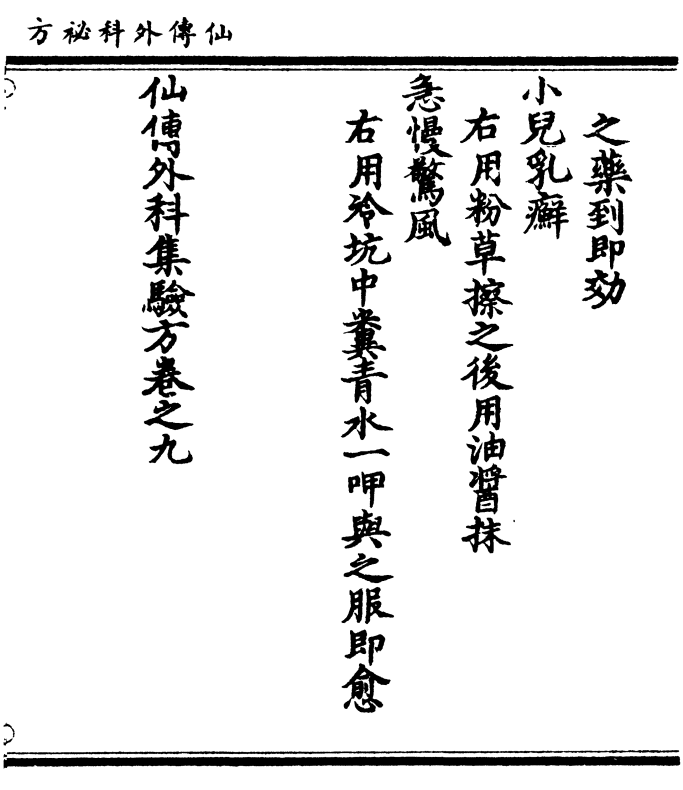 仙傳外科祕方
之藥到即効
小兒乳癬
右用粉草擦之後用油醬抹
急慢驚風
右用冷坑中糞青水一呷與之服即愈
仙傳外科集驗方卷之九